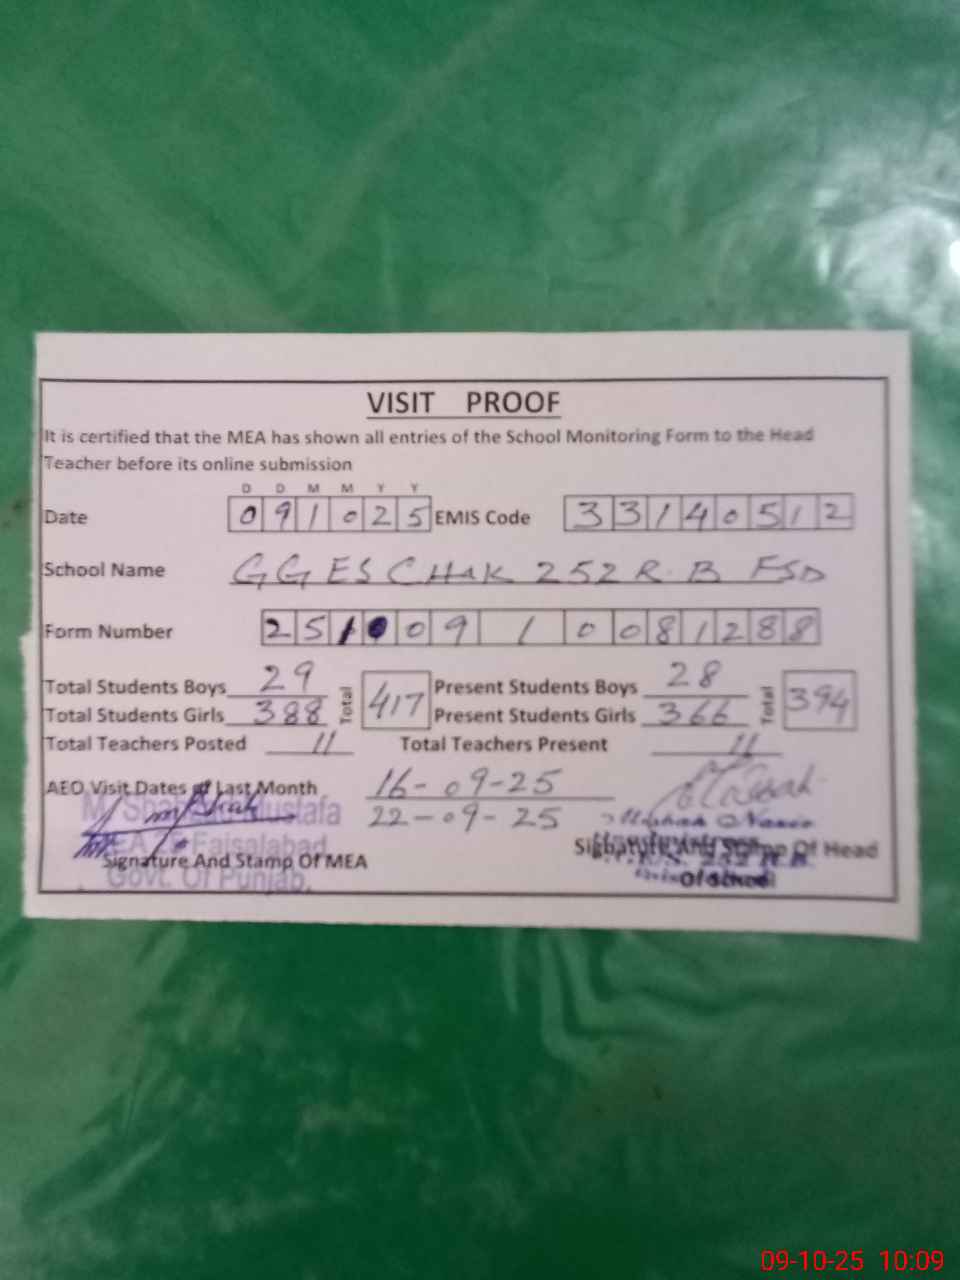 VISIT PROOF
It is certified that the MEA has shown all entries of the School Monitoring Form to the Head
Teacher before its online submission
D D M M Y Y
Date 0 9 1 0 2 5 EMIS Code 3 3 1 4 0 5 1 2
School Name GGES CHAK 252 R.B FSD
Form Number 2 5 1 0 0 9 1 0 0 8 1 2 8 8
Total Students Boys 29 Total 417 Present Students Boys 28 Total 394
Total Students Girls 388 Present Students Girls 366
Total Teachers Posted 11 Total Teachers Present 11
AEO Visit Dates of Last Month 16-09-25
22-09-25
Mustafa
MEA Faisalabad
Govt. Of Punjab.
Signature And Stamp Of MEA
Signature And Stamp Of Head
Of School
09-10-25 10:09